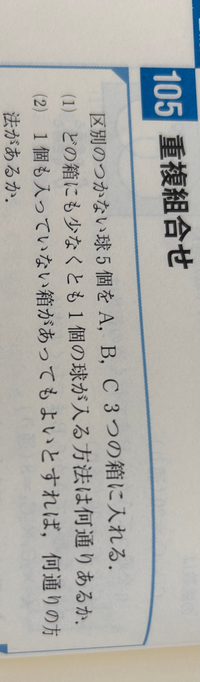 105 重複組合せ
区別のつかない球5個を A, B, C 3つの箱に入れる.
(1) どの箱にも少なくとも1個の球が入る方法は何通りあるか.
(2) 1個も入っていない箱があってもよいとすれば, 何通りの方
法があるか.